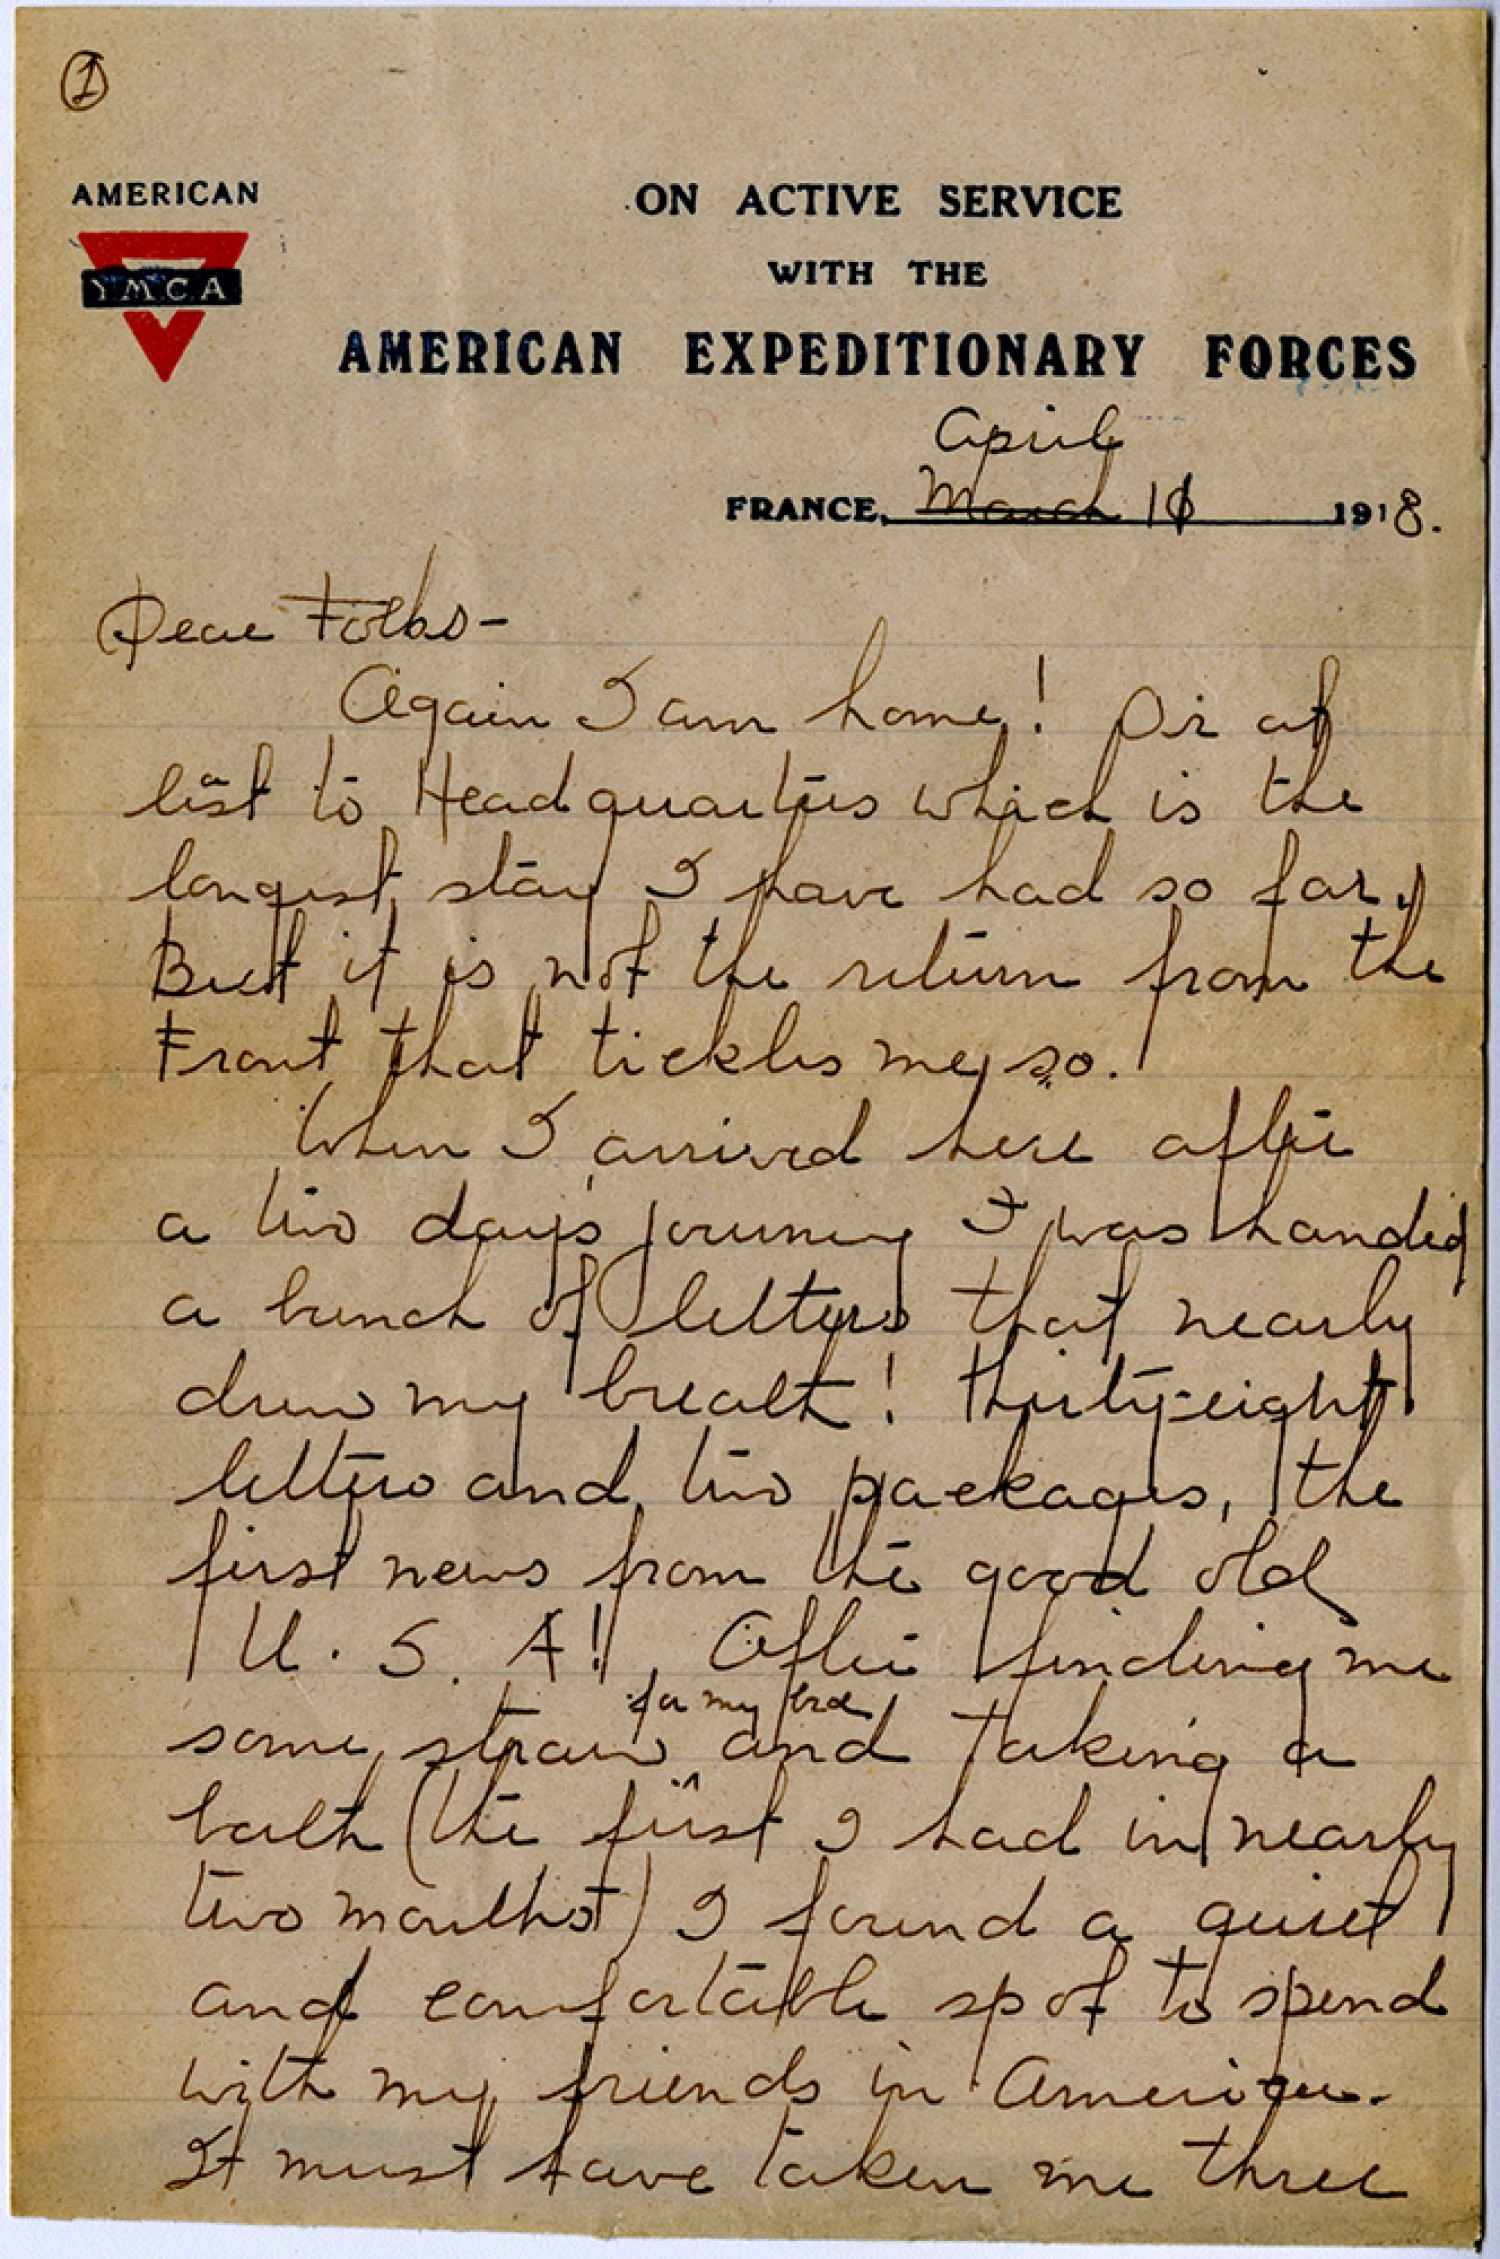 1
AMERICAN
YMCA
ON ACTIVE SERVICE
WITH THE
AMERICAN EXPEDITIONARY FORCES
April
FRANCE, March 10 1918.
Dear Folks-
Again I am home! Or at
least to Headquarters which is the
longest stay I have had so far.
But it is not the return from the
Front that tickles me so.
When I arrived here after
a two day's journey I was handed
a bunch of letters that nearly
drew my breath! Thirty-eight
letters and two packages, the
first news from the good old
U. S. A! After finding me
for my bed
some straw ^ and taking a
bath (the first I had in nearly
two months) I found a quiet
and comfortable spot to spend
with my friends in America.
It must have taken me three